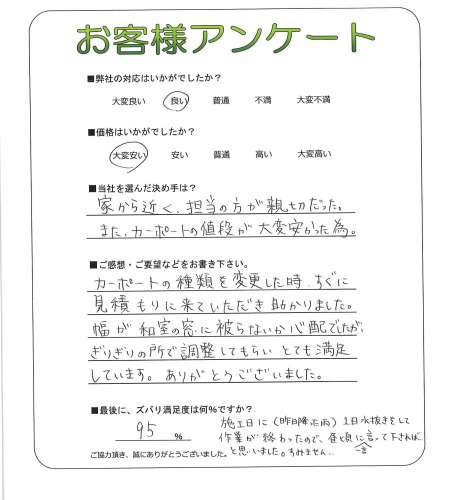 お客様アンケート
■弊社の対応はいかがでしたか？
大変良い 良い 普通 不満 大変不満
■価格はいかがでしたか？
大変安い 安い 普通 高い 大変高い
■当社を選んだ決め手は？
家から近く、担当の方が親切だった。
また、カーポートの値段が大変安かった為。
■ご感想・ご要望などをお書き下さい。
カーポートの種類を変更した時、すぐに
見積もりに来ていただき助かりました。
幅が和室の窓に被らないか心配でしたが、
ぎりぎりの所で調整してもらいとても満足
しています。ありがとうございました。
■最後に、ズバリ満足度は何%ですか？
95 %
施工日に（昨日降った雨）1日水抜きをして
作業が終わったので、昼頃に言って下されば
と思いました。すみません…
ご協力頂き、誠にありがとうございました。